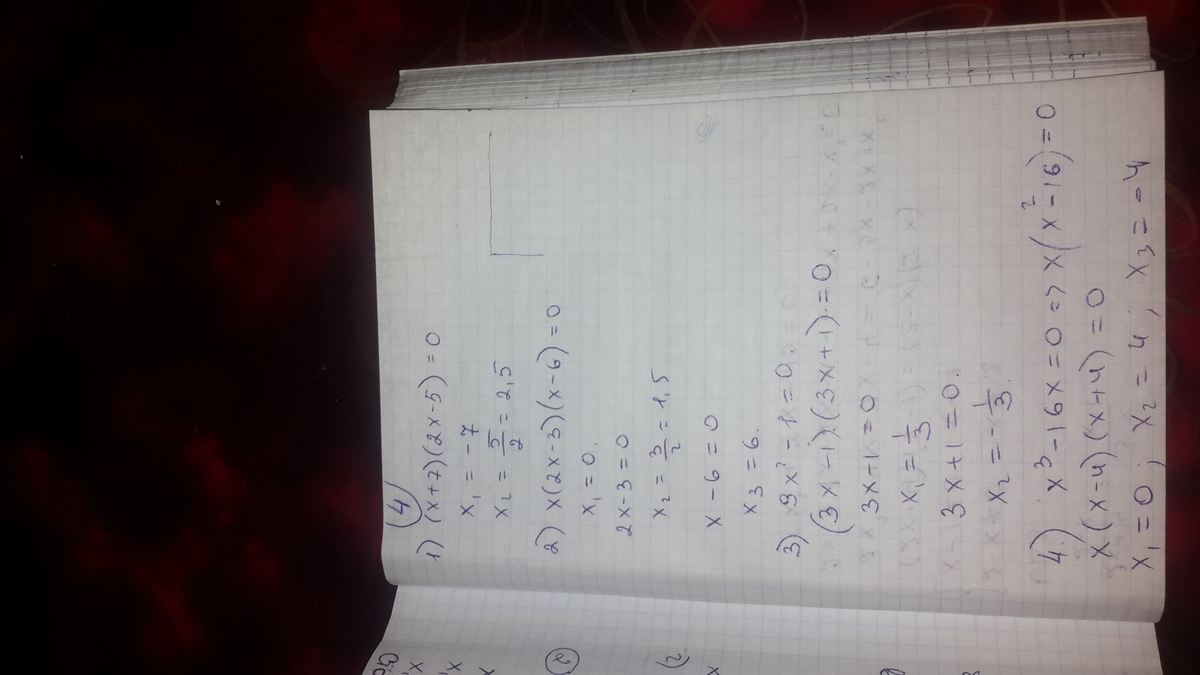 4
1) (x+7)(2x-5)=0
x₁ = -7
x₂ = 5/2 = 2,5
2) x(2x-3)(x-6)=0
x₁=0.
2x-3=0
x₂ = 3/2 = 1,5
x-6=0
x₃=6.
3) 9x²-1=0.
(3x-1)(3x+1)=0.
3x-1=0
x₁=1/3
3x+1=0.
x₂=-1/3.
4.) x³-16x=0 => x(x²-16)=0
x(x-4)(x+4)=0
x₁=0; x₂=4; x₃=-4